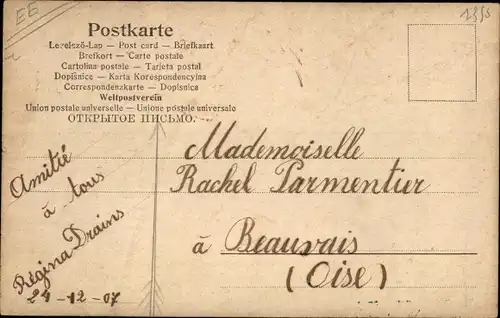 EE
Postkarte
Levelező-Lap — Post card — Briefkaart
Brefkort — Carte postale
Cartolina postale — Tarjeta postal
Dopisnice — Karta Korespondencyjna
Correspondenzkarte — Dopisnica
Weltpostverein
Union postale universelle — Unione postale universale
ОТКРЫТОЕ ПИСЬМО.
Mademoiselle
Rachel Parmentier
à Beauvais
(Oise)
Amitié
à tous
Régina Drains
24-12-07